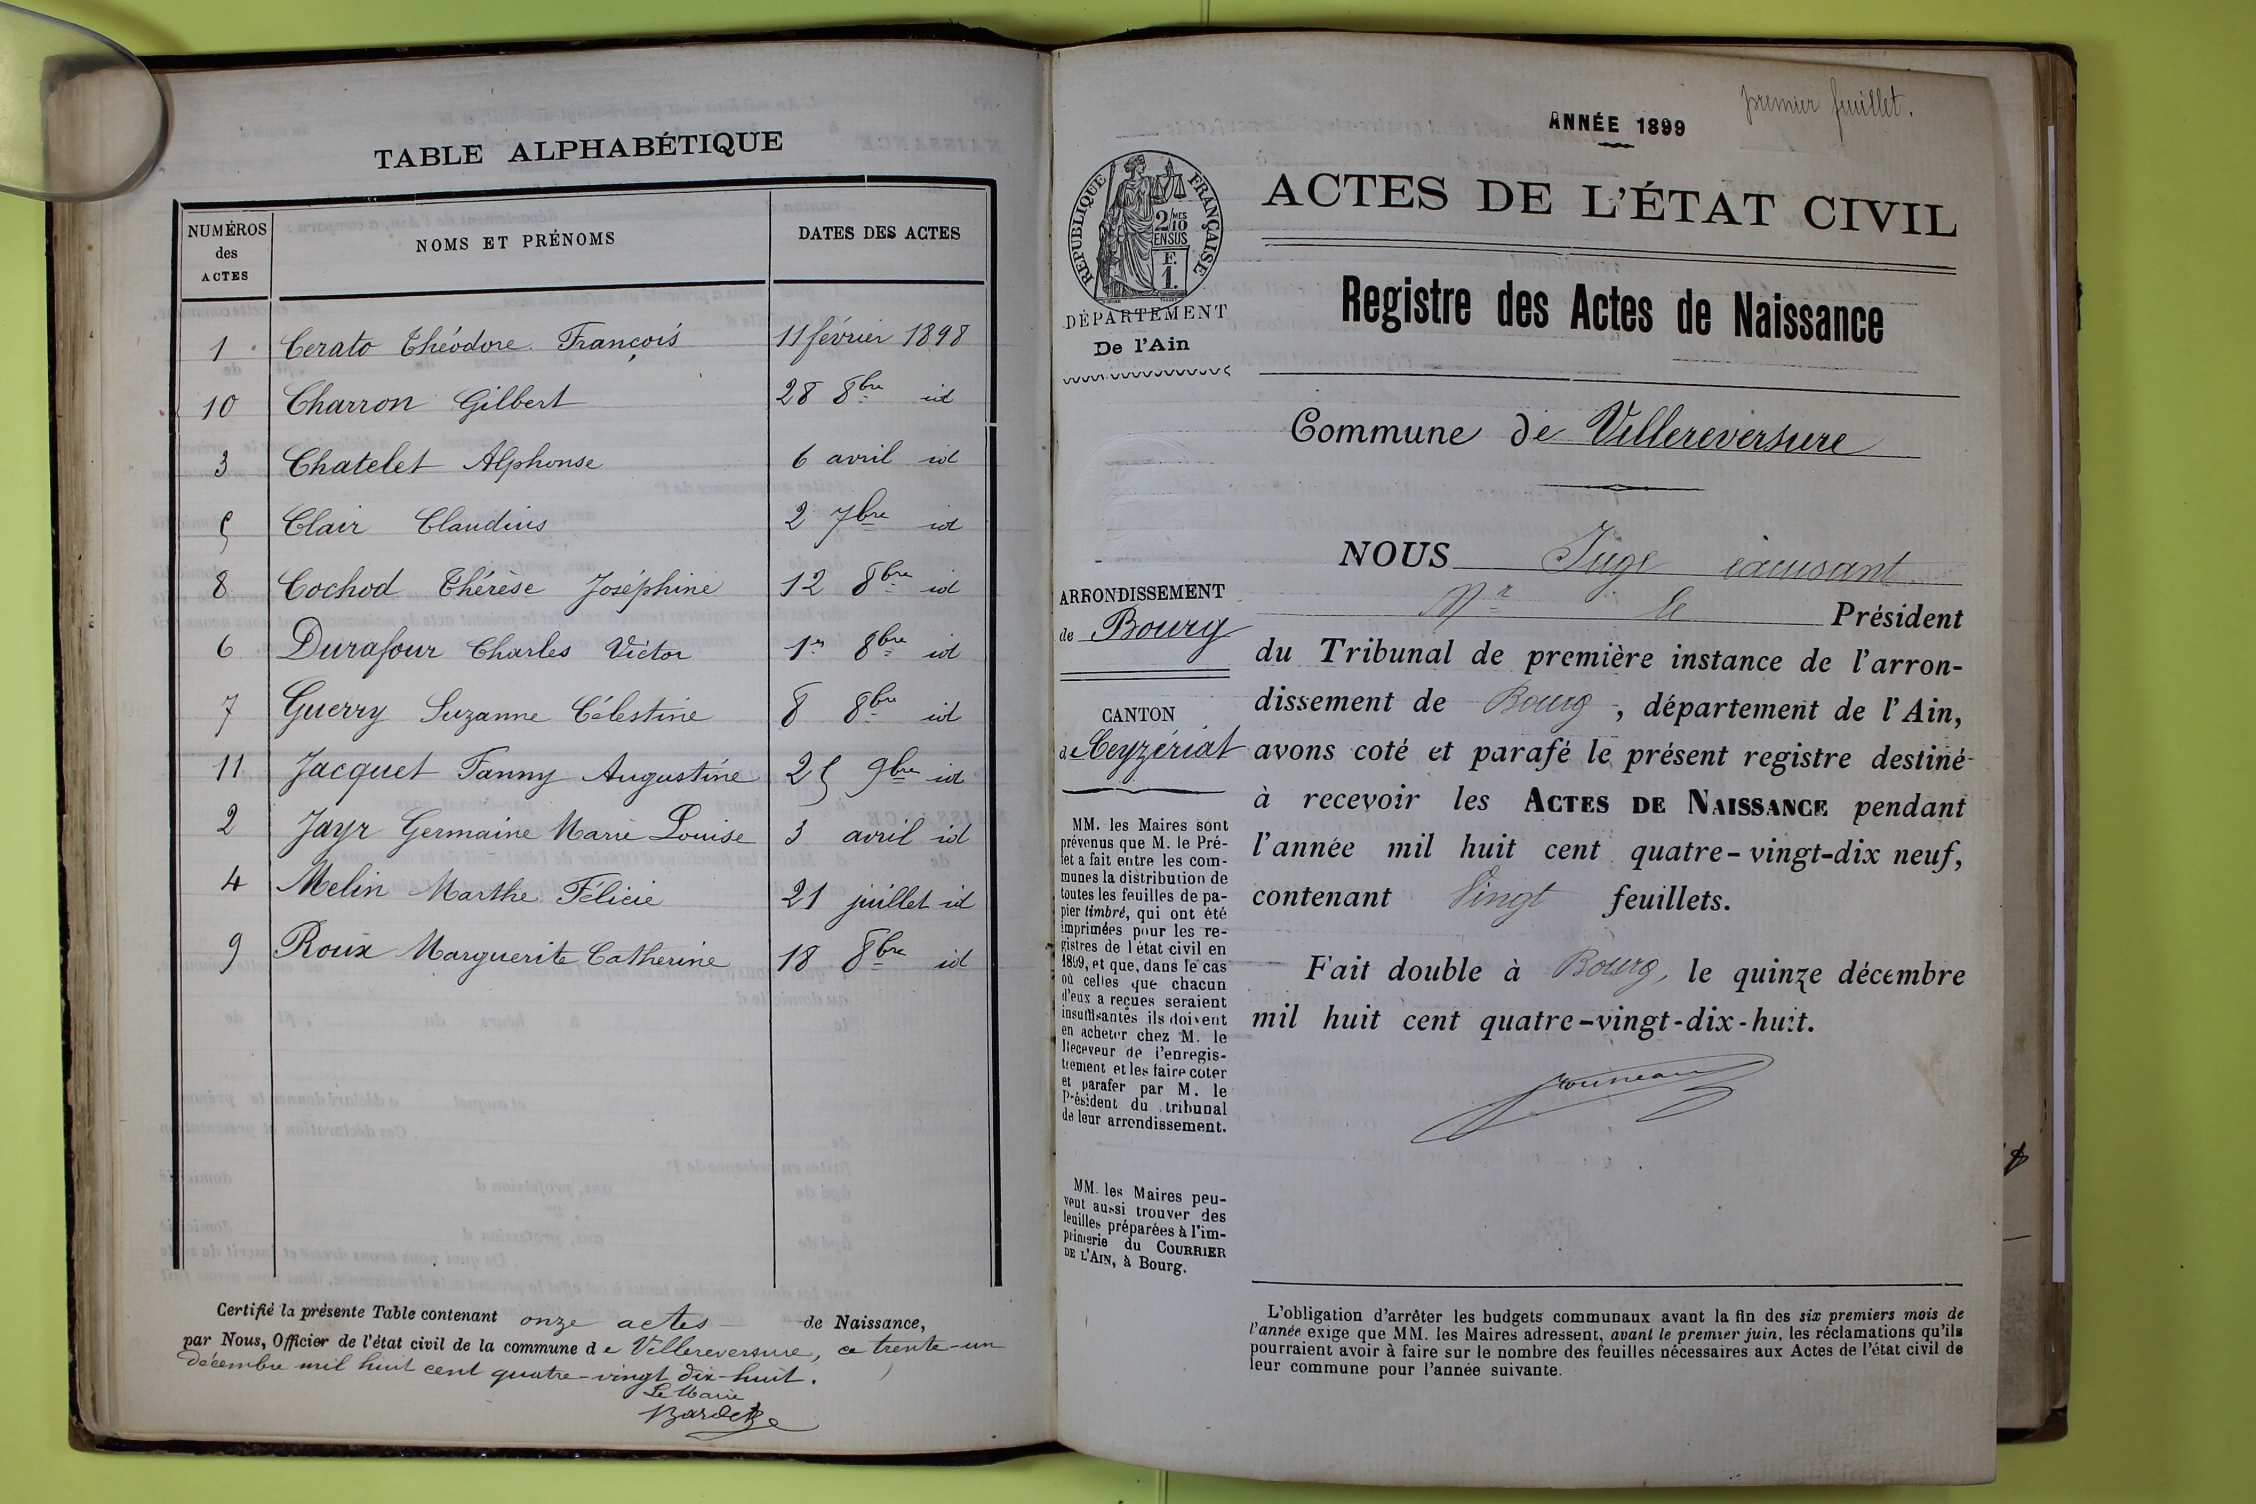 TABLE ALPHABÉTIQUE
NUMÉROS des ACTES NOMS ET PRÉNOMS DATES DES ACTES
1 Cerato Théodore François 11 février 1898
10 Charron Gilbert 28 8bre id
3 Chatelet Alphonse 6 avril id
5 Clair Claudius 2 7bre id
8 Cochod Thérèse Joséphine 12 8bre id
6 Durafour Charles Victor 1er 8bre id
7 Guerry Suzanne Célestine 8 8bre id
11 Jacquet Fanny Augustine 25 9bre id
2 Jayr Germaine Marie Louise 3 avril id
4 Melin Marthe Félicie 21 juillet id
9 Roux Marguerite Catherine 18 8bre id
Certifié la présente Table contenant onze actes de Naissance,
par Nous, Officier de l'état civil de la commune de Villereversure, ce trente-un
décembre mil huit cent quatre-vingt dix-huit.
Le Maire
premier feuillet.
ANNÉE 1899
RÉPUBLIQUE FRANÇAISE
2/10 MES
EN SUS
F.
1.
DÉPARTEMENT
De l'Ain
ACTES DE L'ÉTAT CIVIL
Registre des Actes de Naissance
Commune de Villereversure
ARRONDISSEMENT
de Bourg
CANTON
de Ceyzériat
MM. les Maires sont
prévenus que M. le Pré-
fet a fait entre les com-
munes la distribution de
toutes les feuilles de pa-
pier timbré, qui ont été
imprimées pour les re-
gistres de l'état civil en
1899, et que, dans le cas
où celles que chacun
d'eux a reçues seraient
insuffisantes ils doivent
en acheter chez M. le
Receveur de l'enregis-
trement et les faire coter
et parafer par M. le
Président du tribunal
de leur arrondissement.
MM. les Maires peu-
vent aussi trouver des
feuilles préparées à l'im-
primerie du COURRIER
DE L'AIN, à Bourg.
NOUS Juge
Mr le Président
du Tribunal de première instance de l'arron-
dissement de Bourg, département de l'Ain,
avons coté et parafé le présent registre destiné
à recevoir les ACTES DE NAISSANCE pendant
l'année mil huit cent quatre-vingt-dix neuf,
contenant Vingt feuillets.
Fait double à Bourg, le quinze décembre
mil huit cent quatre-vingt-dix-huit.
L'obligation d'arrêter les budgets communaux avant la fin des six premiers mois de
l'année exige que MM. les Maires adressent, avant le premier juin, les réclamations qu'ils
pourraient avoir à faire sur le nombre des feuilles nécessaires aux Actes de l'état civil de
leur commune pour l'année suivante.